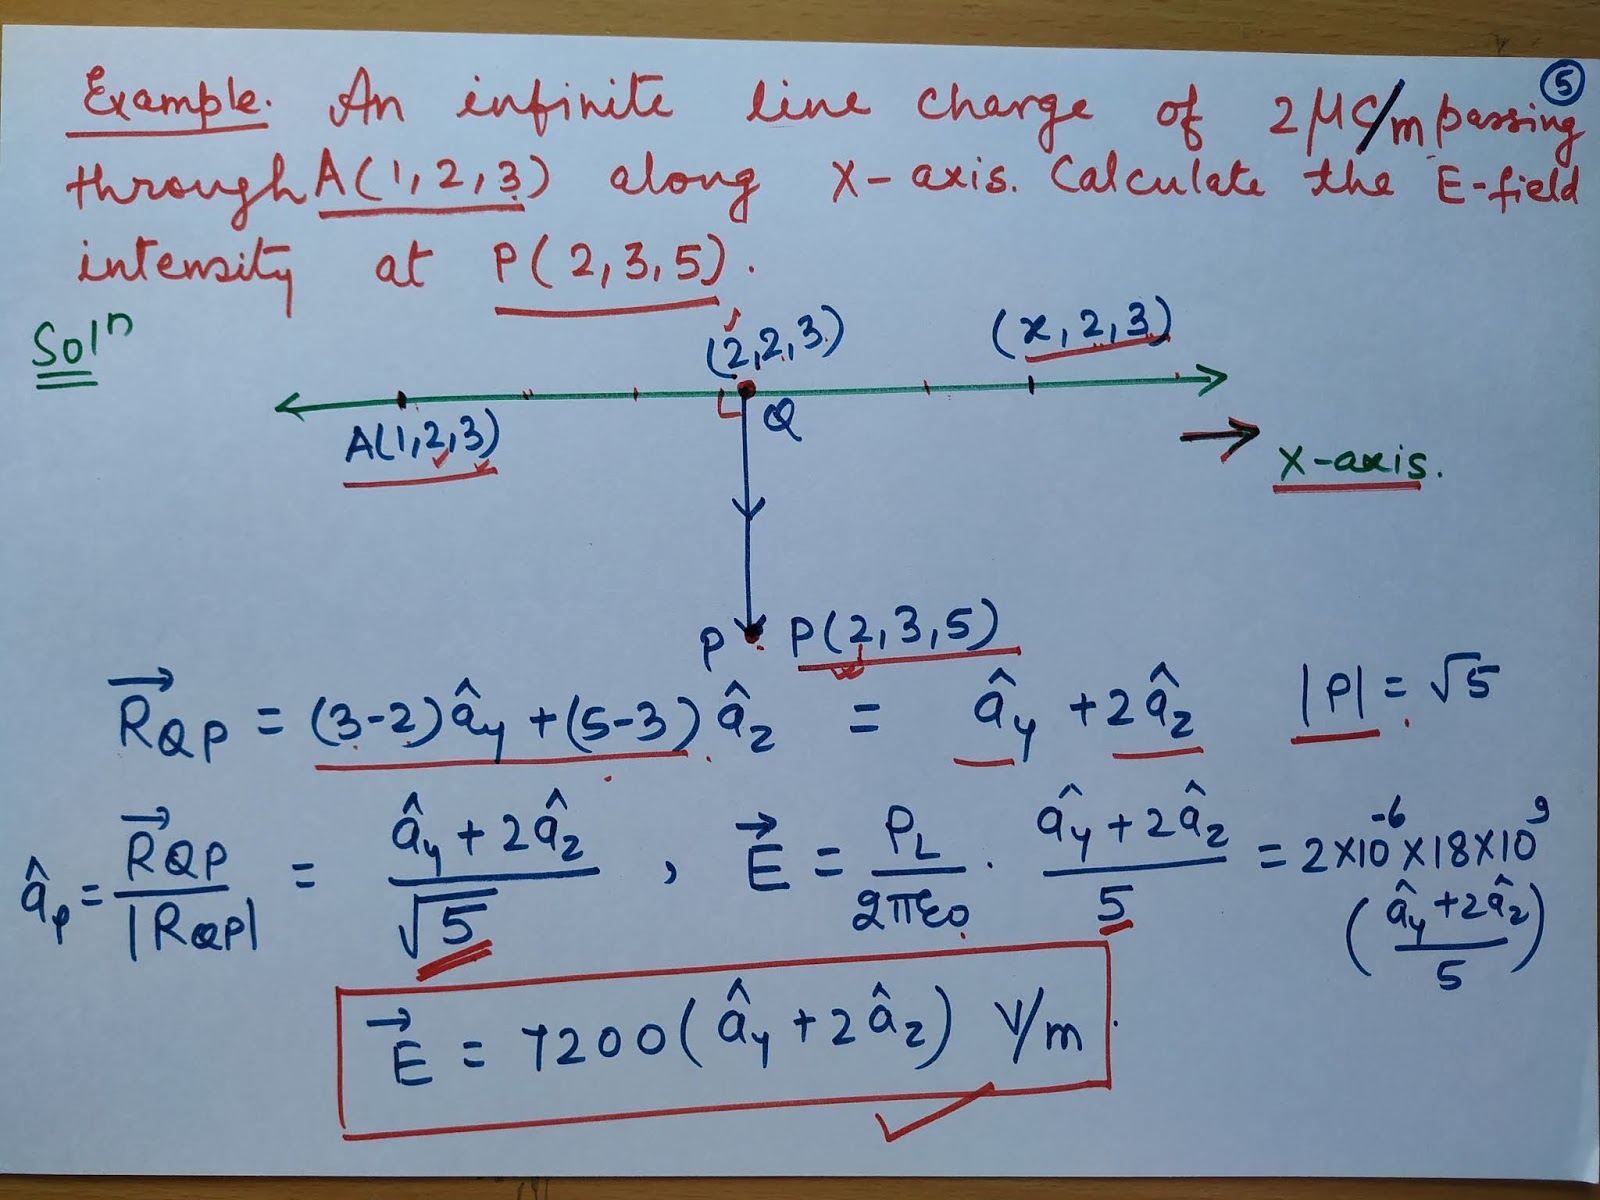 ⑤
Example. An infinite line charge of 2 μC/m passing
through A(1,2,3) along X-axis. Calculate the E-field
intensity at P(2,3,5).
Solⁿ
(2,2,3) (x,2,3)
Q
A(1,2,3)
X-axis.
P P(2,3,5)
R⃗QP = (3-2)ây + (5-3)âz = ây + 2âz |ρ| = √5
âρ = R⃗QP / |RQP| = (ây + 2âz) / √5 , E⃗ = ρL / 2πε0 · (ây + 2âz) / 5 = 2×10⁻⁶×18×10⁹
((ây + 2âz) / 5)
E⃗ = 7200(ây + 2âz) V/m